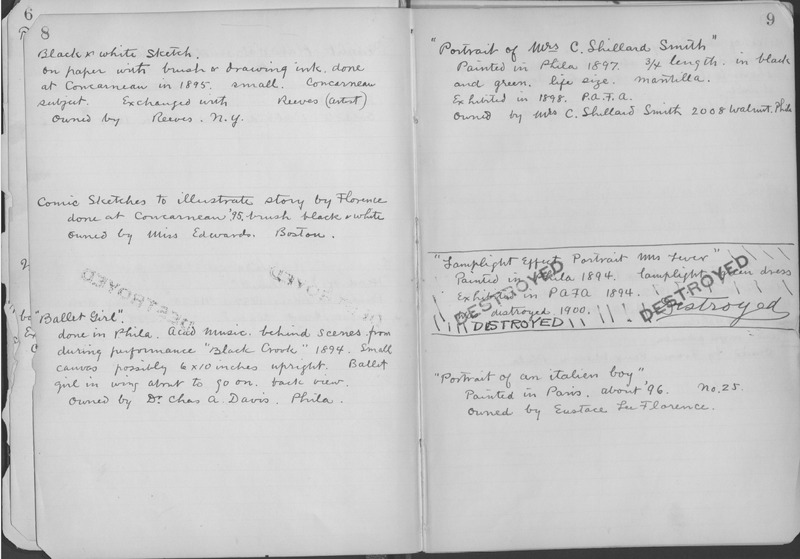 6
8
Black & white Sketch.
on paper with brush & drawing ink. done
at Concarneau in 1895. small. Concarneau
subject. Exchanged with Reeves (artist)
owned by Reeves. N.Y.
Comic Sketches to illustrate story by Florence
done at Concarneau '95. brush black & white
owned by Miss Edwards. Boston.
DESTROYED
"Ballet Girl".
done in Phila. Acad Music. behind scenes from
during performance "Black Crook" 1894. Small
canvas possibly 6x10 inches upright. Ballet
girl in wing about to go on. back view.
owned by Dr Chas A. Davis. Phila.
9
"Portrait of Mrs C. Shillard Smith"
Painted in Phila 1897. 3/4 length. in black
and green. life size. mantilla.
Exhibited in 1898. P.A.F.A.
owned by Mrs C. Shillard Smith 2008 Walnut. Phila
"Lamplight Effect Portrait Mrs Lever"
Painted in Phila 1894. lamplight green dress
Exhibited in PAFA 1894.
destroyed 1900. Destroyed
DESTROYED
DESTROYED
DESTROYED
"Portrait of an italien boy"
Painted in Paris. about '96. No. 25.
owned by Eustace Lee Florence.